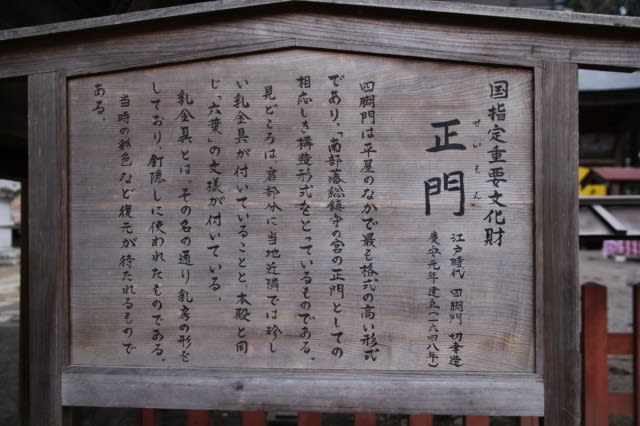 国指定重要文化財
せいもん
正門
江戸時代 四脚門 切妻造
慶安元年建立(一六四八年)
四脚門は平屋のなかで最も格式の高い形式
であり、「南部藩総鎮守の宮の正門としての
相応しき構造形式をとっているものである。
見どころは、扉部分に当地近隣では珍し
い乳金具が付いていることと、本殿と同
じ「六葉」の文様が付いている。
乳金具とは、その名の通り乳房の形を
しており、釘隠しに使われたものである。
当時の彩色など復元が待たれるもので
ある。